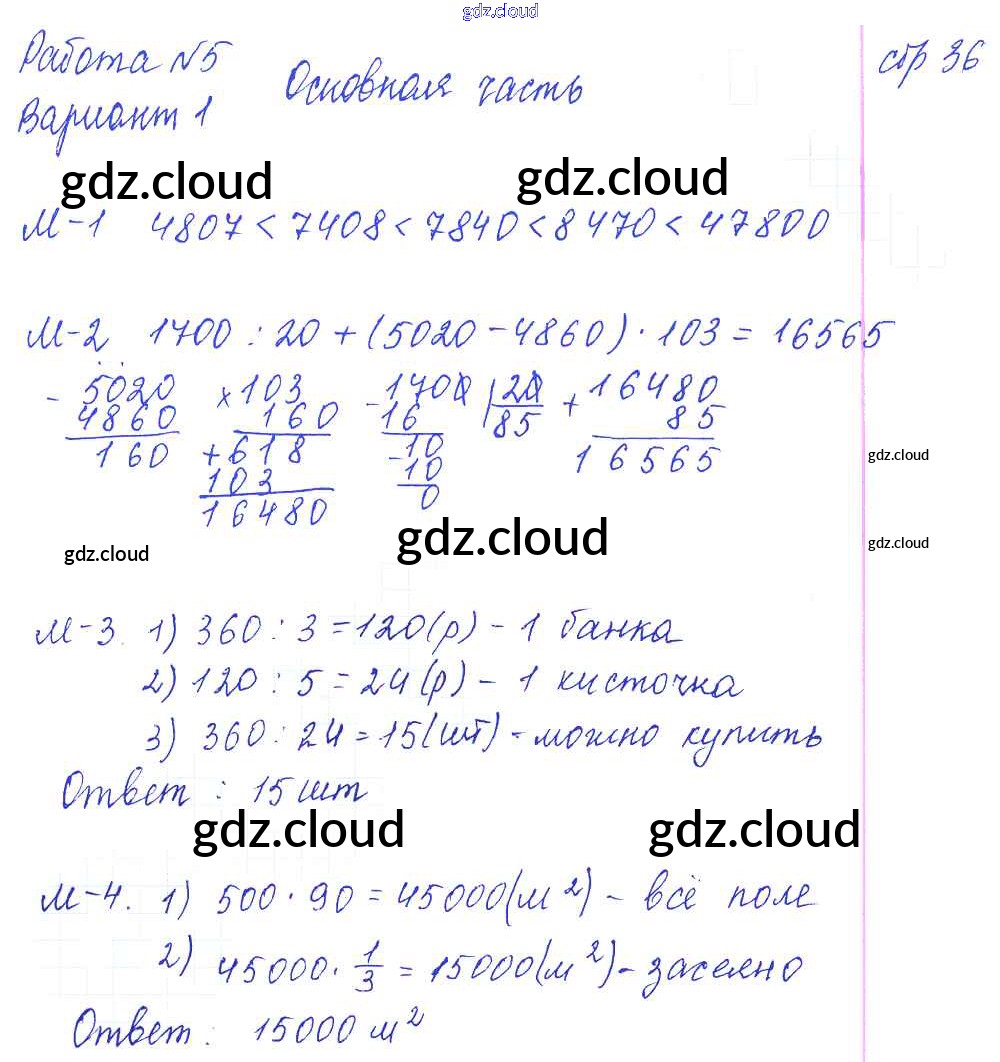 gdz.cloud
Работа №5 Основная часть стр 36
Вариант 1
gdz.cloud gdz.cloud
М-1 4807 < 7408 < 7840 < 8470 < 47800
М-2 1700 : 20 + (5020 - 4860) · 103 = 16565
- 5020 × 103 - 1700 | 20 + 16480
4860 160 16 85 85
160 + 618 - 10 16565
103 10
16480 0
gdz.cloud
gdz.cloud
gdz.cloud gdz.cloud
М-3. 1) 360 : 3 = 120 (р) - 1 банка
2) 120 : 5 = 24 (р) - 1 кисточка
3) 360 : 24 = 15 (шт) - можно купить
Ответ : 15 шт
gdz.cloud gdz.cloud
М-4. 1) 500 · 90 = 45000 (м²) - всё поле
2) 45000 · 1/3 = 15000 (м²) - засеяно
Ответ : 15000 м²